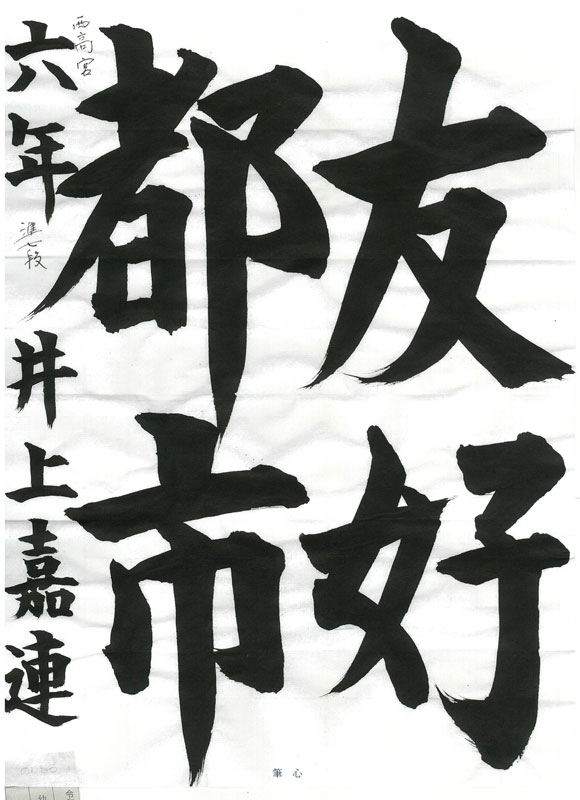 友好
都市
西高宮
六年 井上嘉連
準七段
心筆